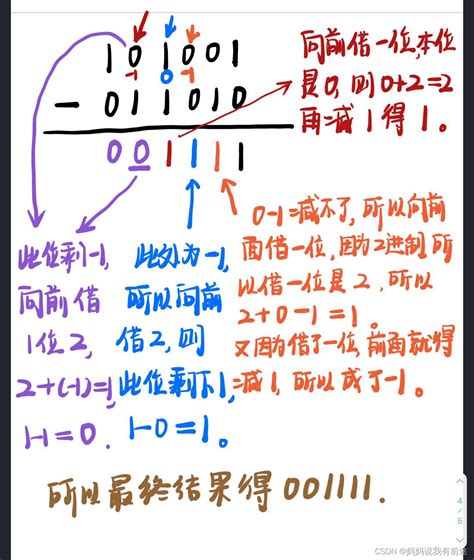 101001
-1 0 -1
- 011010
001111
向前借一位,本位
是0,则0+2=2
再减1得1。
0-1=减不了,所以向前
面借一位,因为2进制,所
以借一位是2,所以
2+0-1=1。
又因为借了一位,前面就得
减1,所以成了-1。
此处为-1,
所以向前
借2,则
此位剩下1,
1-0=1。
此位剩-1,
向前借
1位2,
2+(-1)=1,
1-1=0.
所以最终结果得001111.
4
/
5
CSDN @妈妈说我有前途